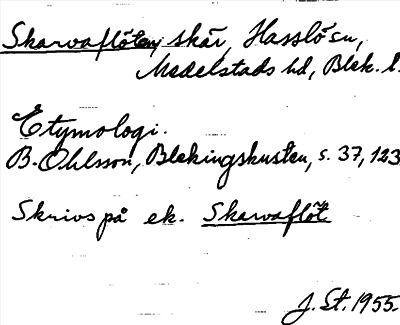 Skarvaflöten, skär, Hasslö sn,
Medelstads hd, Blek. l.
Etymologi.
B. Ohlsson, Blekingskusten, s. 37, 123
Skrivs på ek. Skarvaflöt
J. St. 1955.